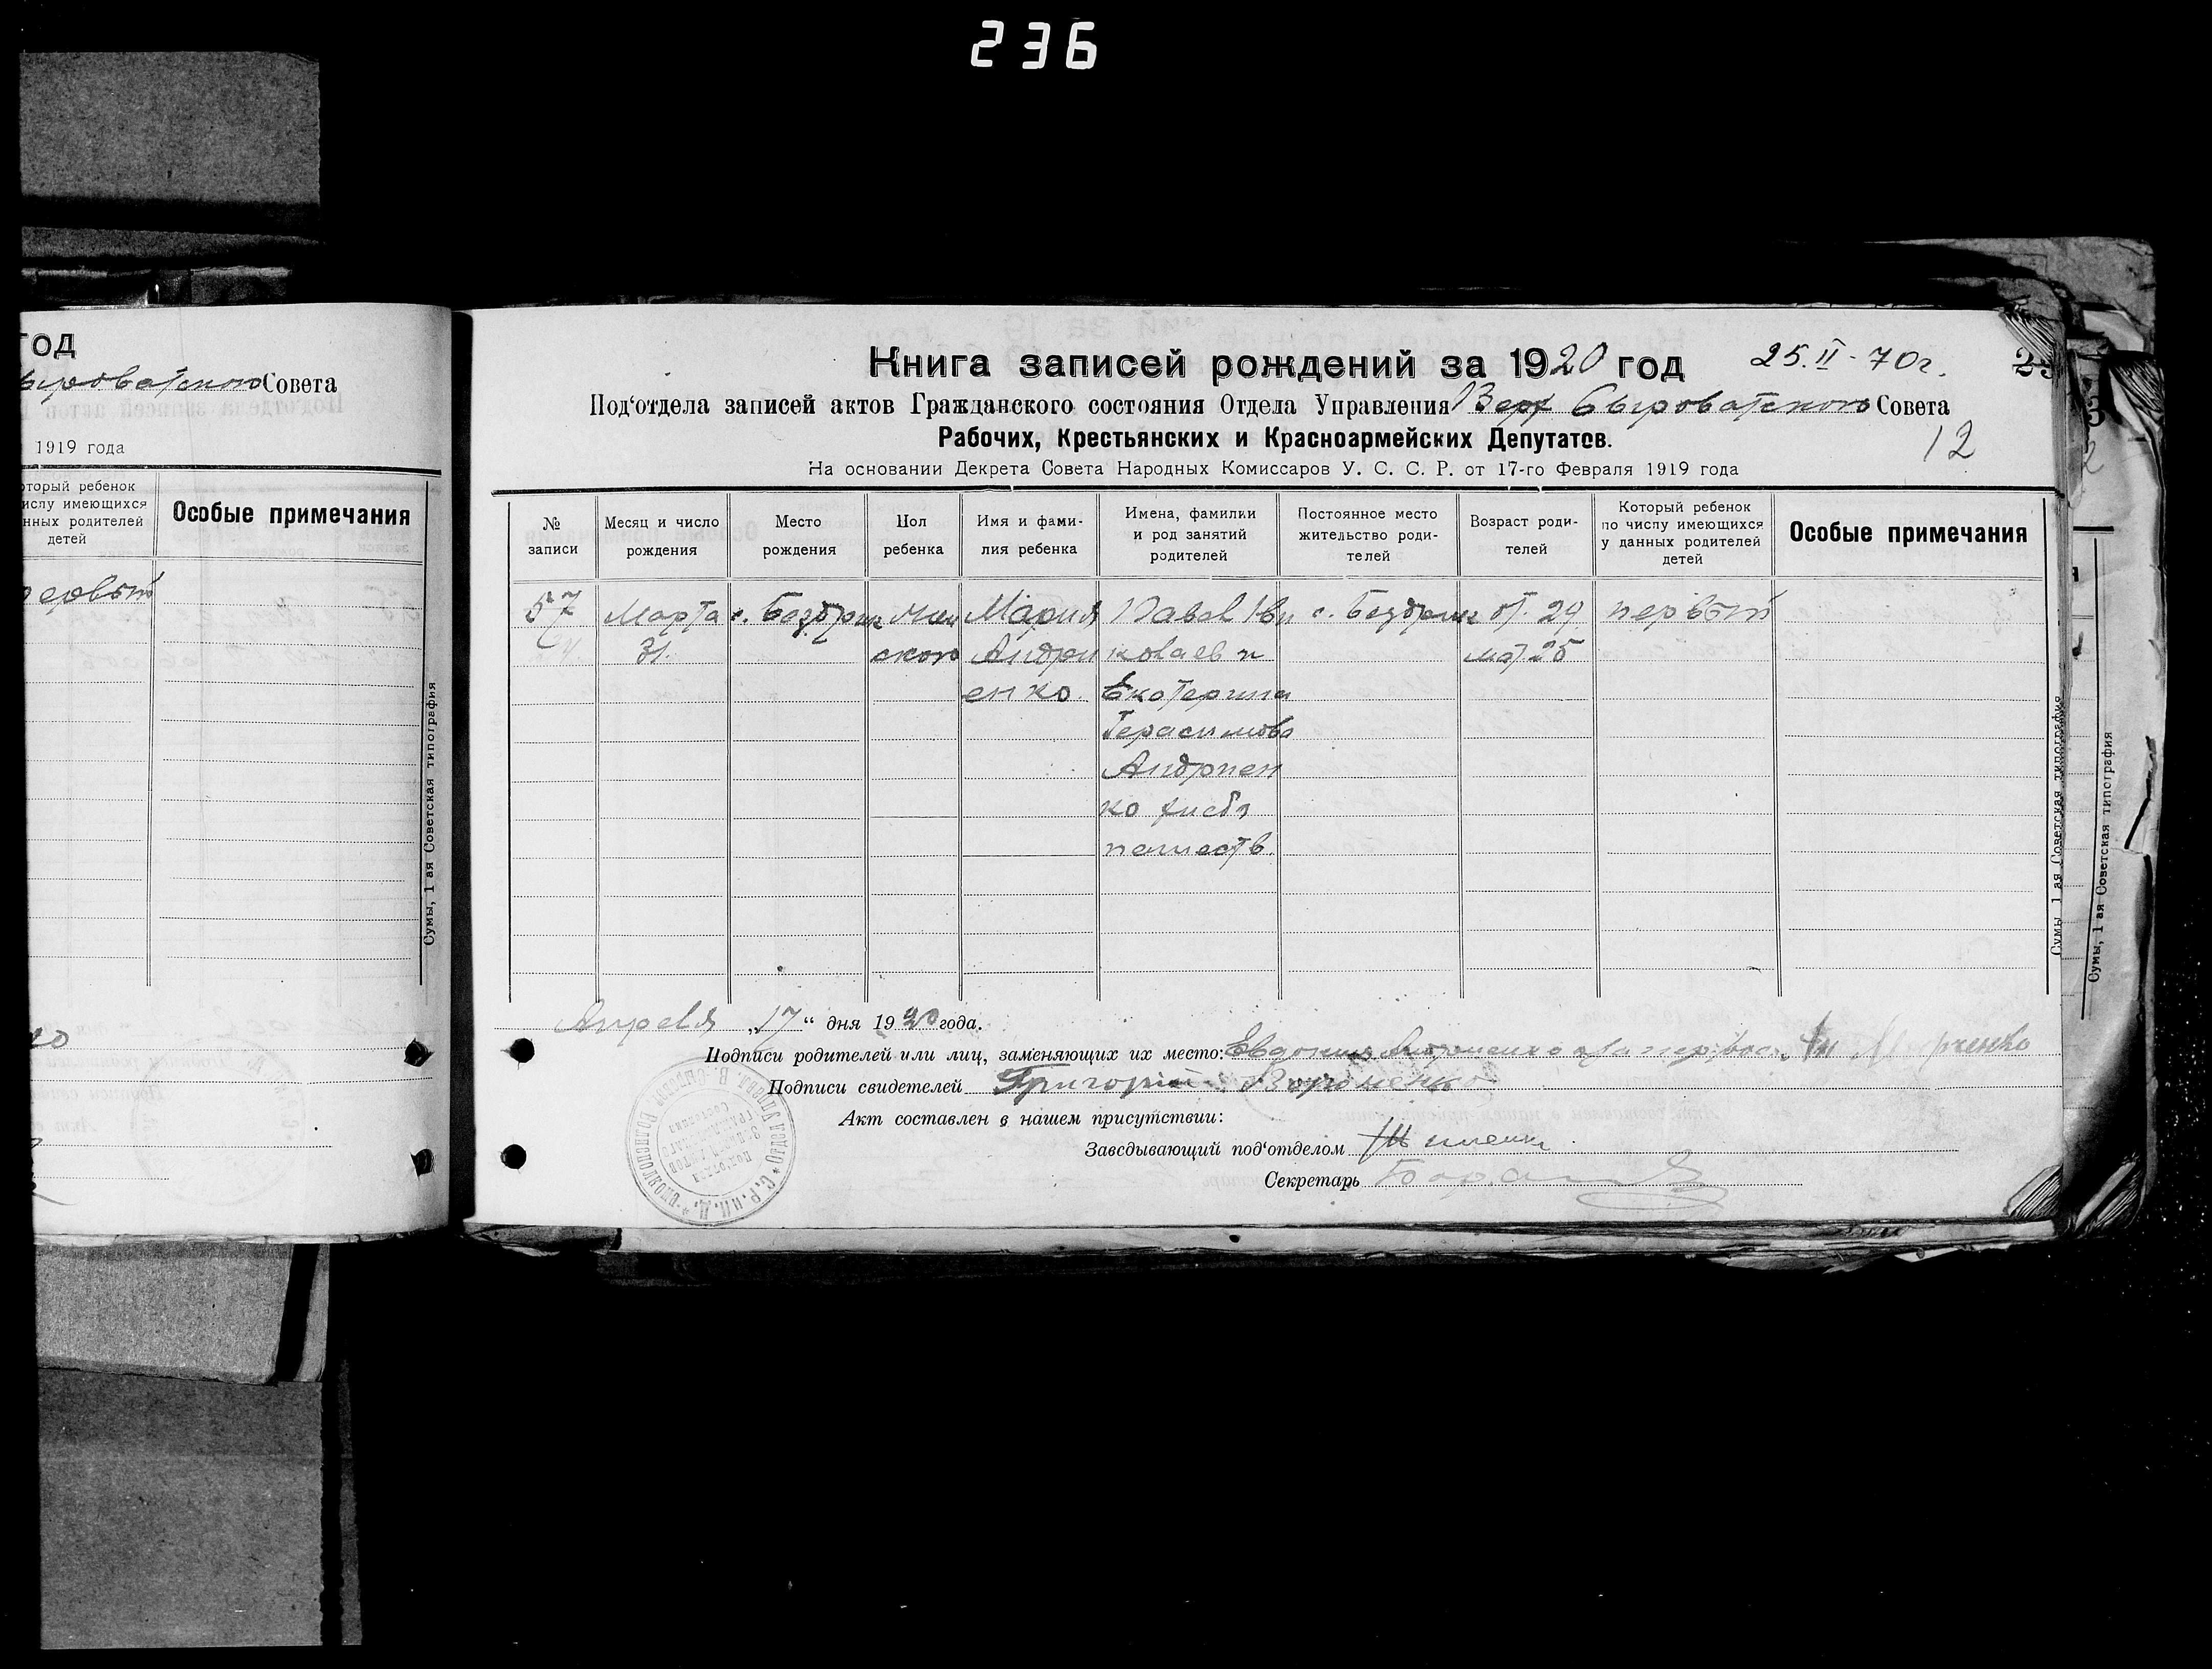 236
год
ыроватского Совета
1919 года
оторый ребенок
ислу имеющихся
нных родителей
детей
Особые примечания
ервый
Сумы, 1 ая Советская типография
Книга записей рождений за 1920 год
25.II-70г.
Под‘отдела записей актов Гражданского состояния Отдела Управления Верх Сыроватского Совета
Рабочих, Крестьянских и Красноармейских Депутатов.
12
На основании Декрета Совета Народных Комиссаров У. С. С. Р. от 17-го Февраля 1919 года
№ записи
Месяц и число рождения
Место рождения
Пол ребенка
Имя и фами-
лия ребенка
Имена, фамилии
и род занятий
родителей
Постоянное место
жительство роди-
телей
Возраст роди-
телей
Который ребенок
по числу имеющихся
у данных родителей
детей
Особые примечания
57
Марта
31.
с. Бездрик
Жен
ского
Мария
Андри
енко
Павел Ни
колаев и
Екатерина
Герасимова
Андриен
ко хлебо
пашеств.
с. Бездрик
от. 29
мат 25
первый
Апреля „17“ дня 1920 года.
Подписи родителей или лиц, заменяющих их место: Евдокия
Подписи свидетелей Григорий
Акт составлен в нашем присутствии:
Заведывающий под‘отделом
Секретарь
Сумы 1 ая Советская типография
Сумы, 1 ая Советская типография